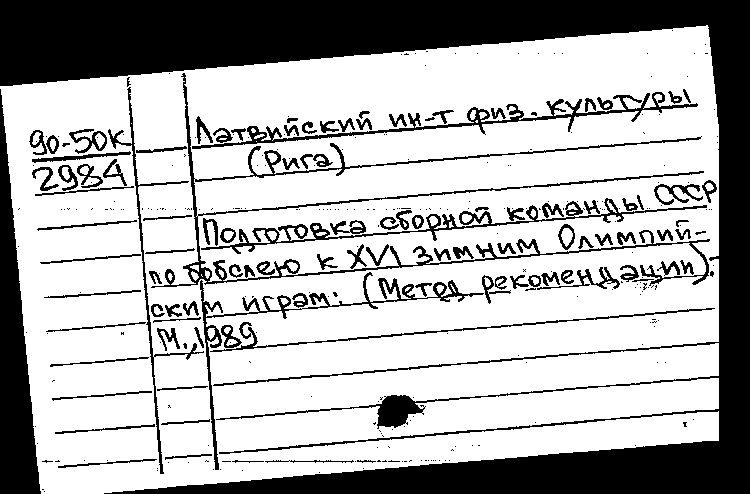 90-50К
2984
Латвийский ин-т физ. культуры
(Рига)
Подготовка сборной команды СССР
по бобслею к XVI зимним Олимпий-
ским играм: (Метод. рекомендации).-
М., 1989